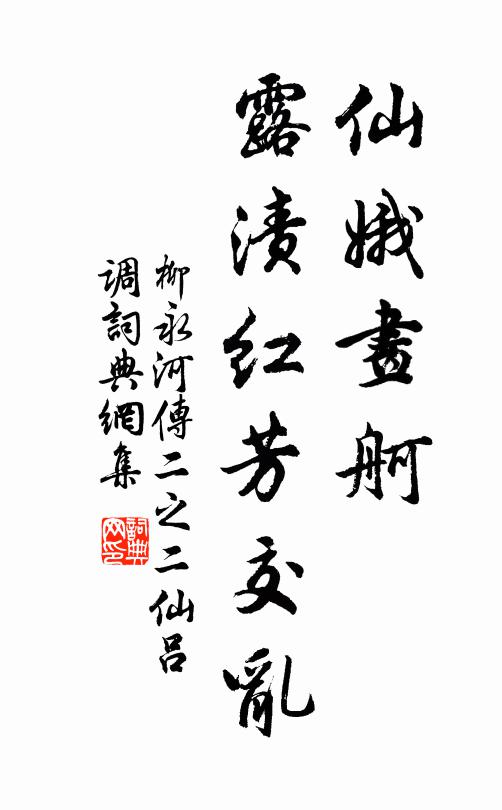 仙娥畫舸
露漬红芳交亂
柳永河傳二之二仙吕
调詞典網集
詞典网印